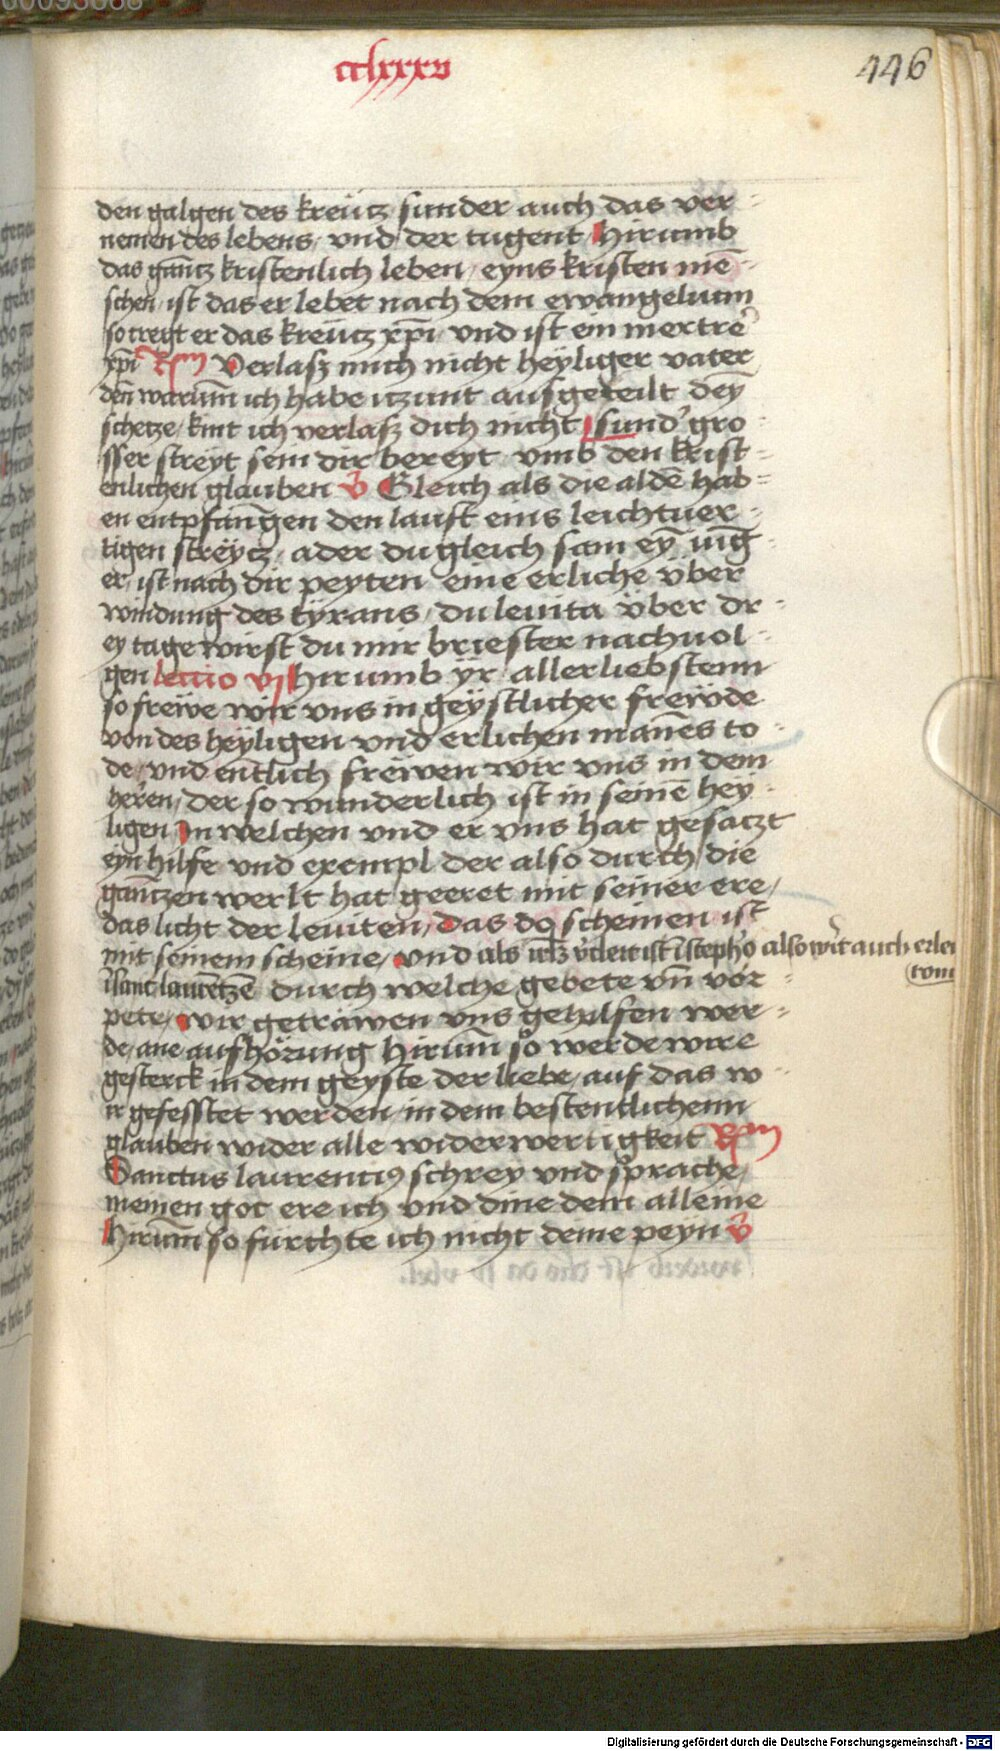 cclxxxv
446
den galgen des kreucz sunder auch das ver-
nemen des lebens und der tugent hirumb
das gancz kristenlich leben eyns kristen mē-
schen ist das er lebet nach dem ewangelium
so tregt er das kreücz xp̄i und ist ein mertrē
xp̄i Rm̄ Verlasz mich nicht heyliger vater
den warum̄ ich habe iczunt ausgeteilt deȳ
schetze kint ich verlasz dich nicht sund' gro-
sser streyt sein dir bereyt vmb den krist-
enlichen glauben V Gleich als die aldē hab-
en entpfangen den lauft eins leichtuer-
tigen streycz ader du gleich sam eȳ iūg-
er ist nach dir peyten eine erliche vber
windung des tyrans du leuita über dr-
ey tage wirst du mir briester nachuol-
gen lectio vj Hirumb yr allerliebstenn
so freẅe wir vns in geystlicher freẅde
von des heyligen vnd erlichen man̄es to-
de vnd entlich freẅen wir vns in dem
heren der so wunderlich ist in seinē hey-
ligen In welchen vnd er vns hat gesaczt
eyn hilfe vnd exempl der also durch die
ganczen werlt hat geeret mit seiner ere
das licht der leuiten das do scheinen ist
mit seinem scheine vnd als also auch
sant laurētzē durch welche gebete vn̄ vor-
pete wir getrawen vns geholfen wer-
de ane aufhörung hirum̄ so werde wire
gesterck in dem geyste der liebe auf das w-
ir gefesstet werden in dem bestentlichenn
glauben wider alle widerwertigkeit Rm̄
Sanctus laurentiꝰ schrey vnd sprache
meinen got ere ich vnd dine dem alleine
Hirum̄ so fürchte ich nicht deine peyn V
Digitalisierung gefördert durch die Deutsche Forschungsgemeinschaft - DFG